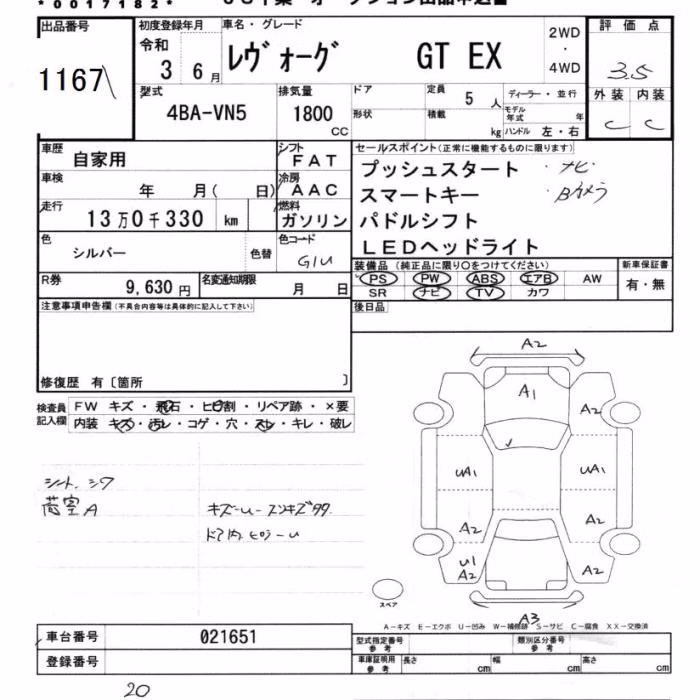 *0017182*
出品番号
1167
初度登録年月
令和
3 6月
車名・グレード
レヴォーグ GT EX
2WD
・
4WD
評価点
3.5
型式
4BA-VN5
排気量
1800
CC
ドア
形状
定員
5人
積載
kg
ディーラー・並行
モデル年式 年
ハンドル 左・右
外装 内装
C C
車歴
自家用
シフト
FAT
車検
年 月( 日)
冷房
AAC
走行
13万0千330 km
燃料
ガソリン
色
シルバー
色替
色コード
G1U
R券
9,630円
名変通知期限
月 日
セールスポイント(正常に機能するものに限ります)
プッシュスタート ・ナビ
スマートキー ・Bカメラ
パドルシフト
LEDヘッドライト
装備品(純正品に限り○をつけてください)
PS PW ABS エアB AW
SR ナビ TV カワ
新車保証書
有・無
後日品
注意事項申告欄(不具合内容等は具体的に記入して下さい)
修復歴 有〔箇所 〕
検査員
記入欄
FW キズ・飛石・ヒビ割・リペア跡・×要
内装 キズ・汚レ・コゲ・穴・スレ・キレ・破レ
シート、シワ
荷室A
A2
A1
A2
UA1
UA1
A2
A2
U1
A2
A2
A3
スペア
A-キズ E-エクボ U-凹み W-補修跡 S-サビ C-腐食 XX-交換済
車台番号
021651
登録番号
型式指定番号
参考
類別区分番号
参考
車庫証明用
参考
長さ cm
幅 cm
高さ cm
20